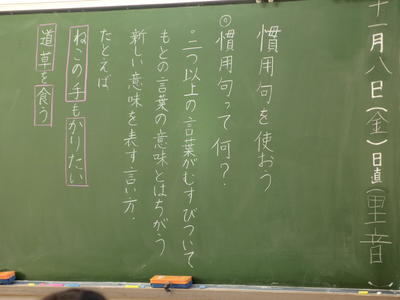 十一月八日(金)日直(里音)
慣用句を使おう
◎慣用句って何?
・二つ以上の言葉がむすびついて
もとの言葉の意味とはちがう
新しい意味を表す言い方.
たとえば
ねこの手もかりたい
道草を食う